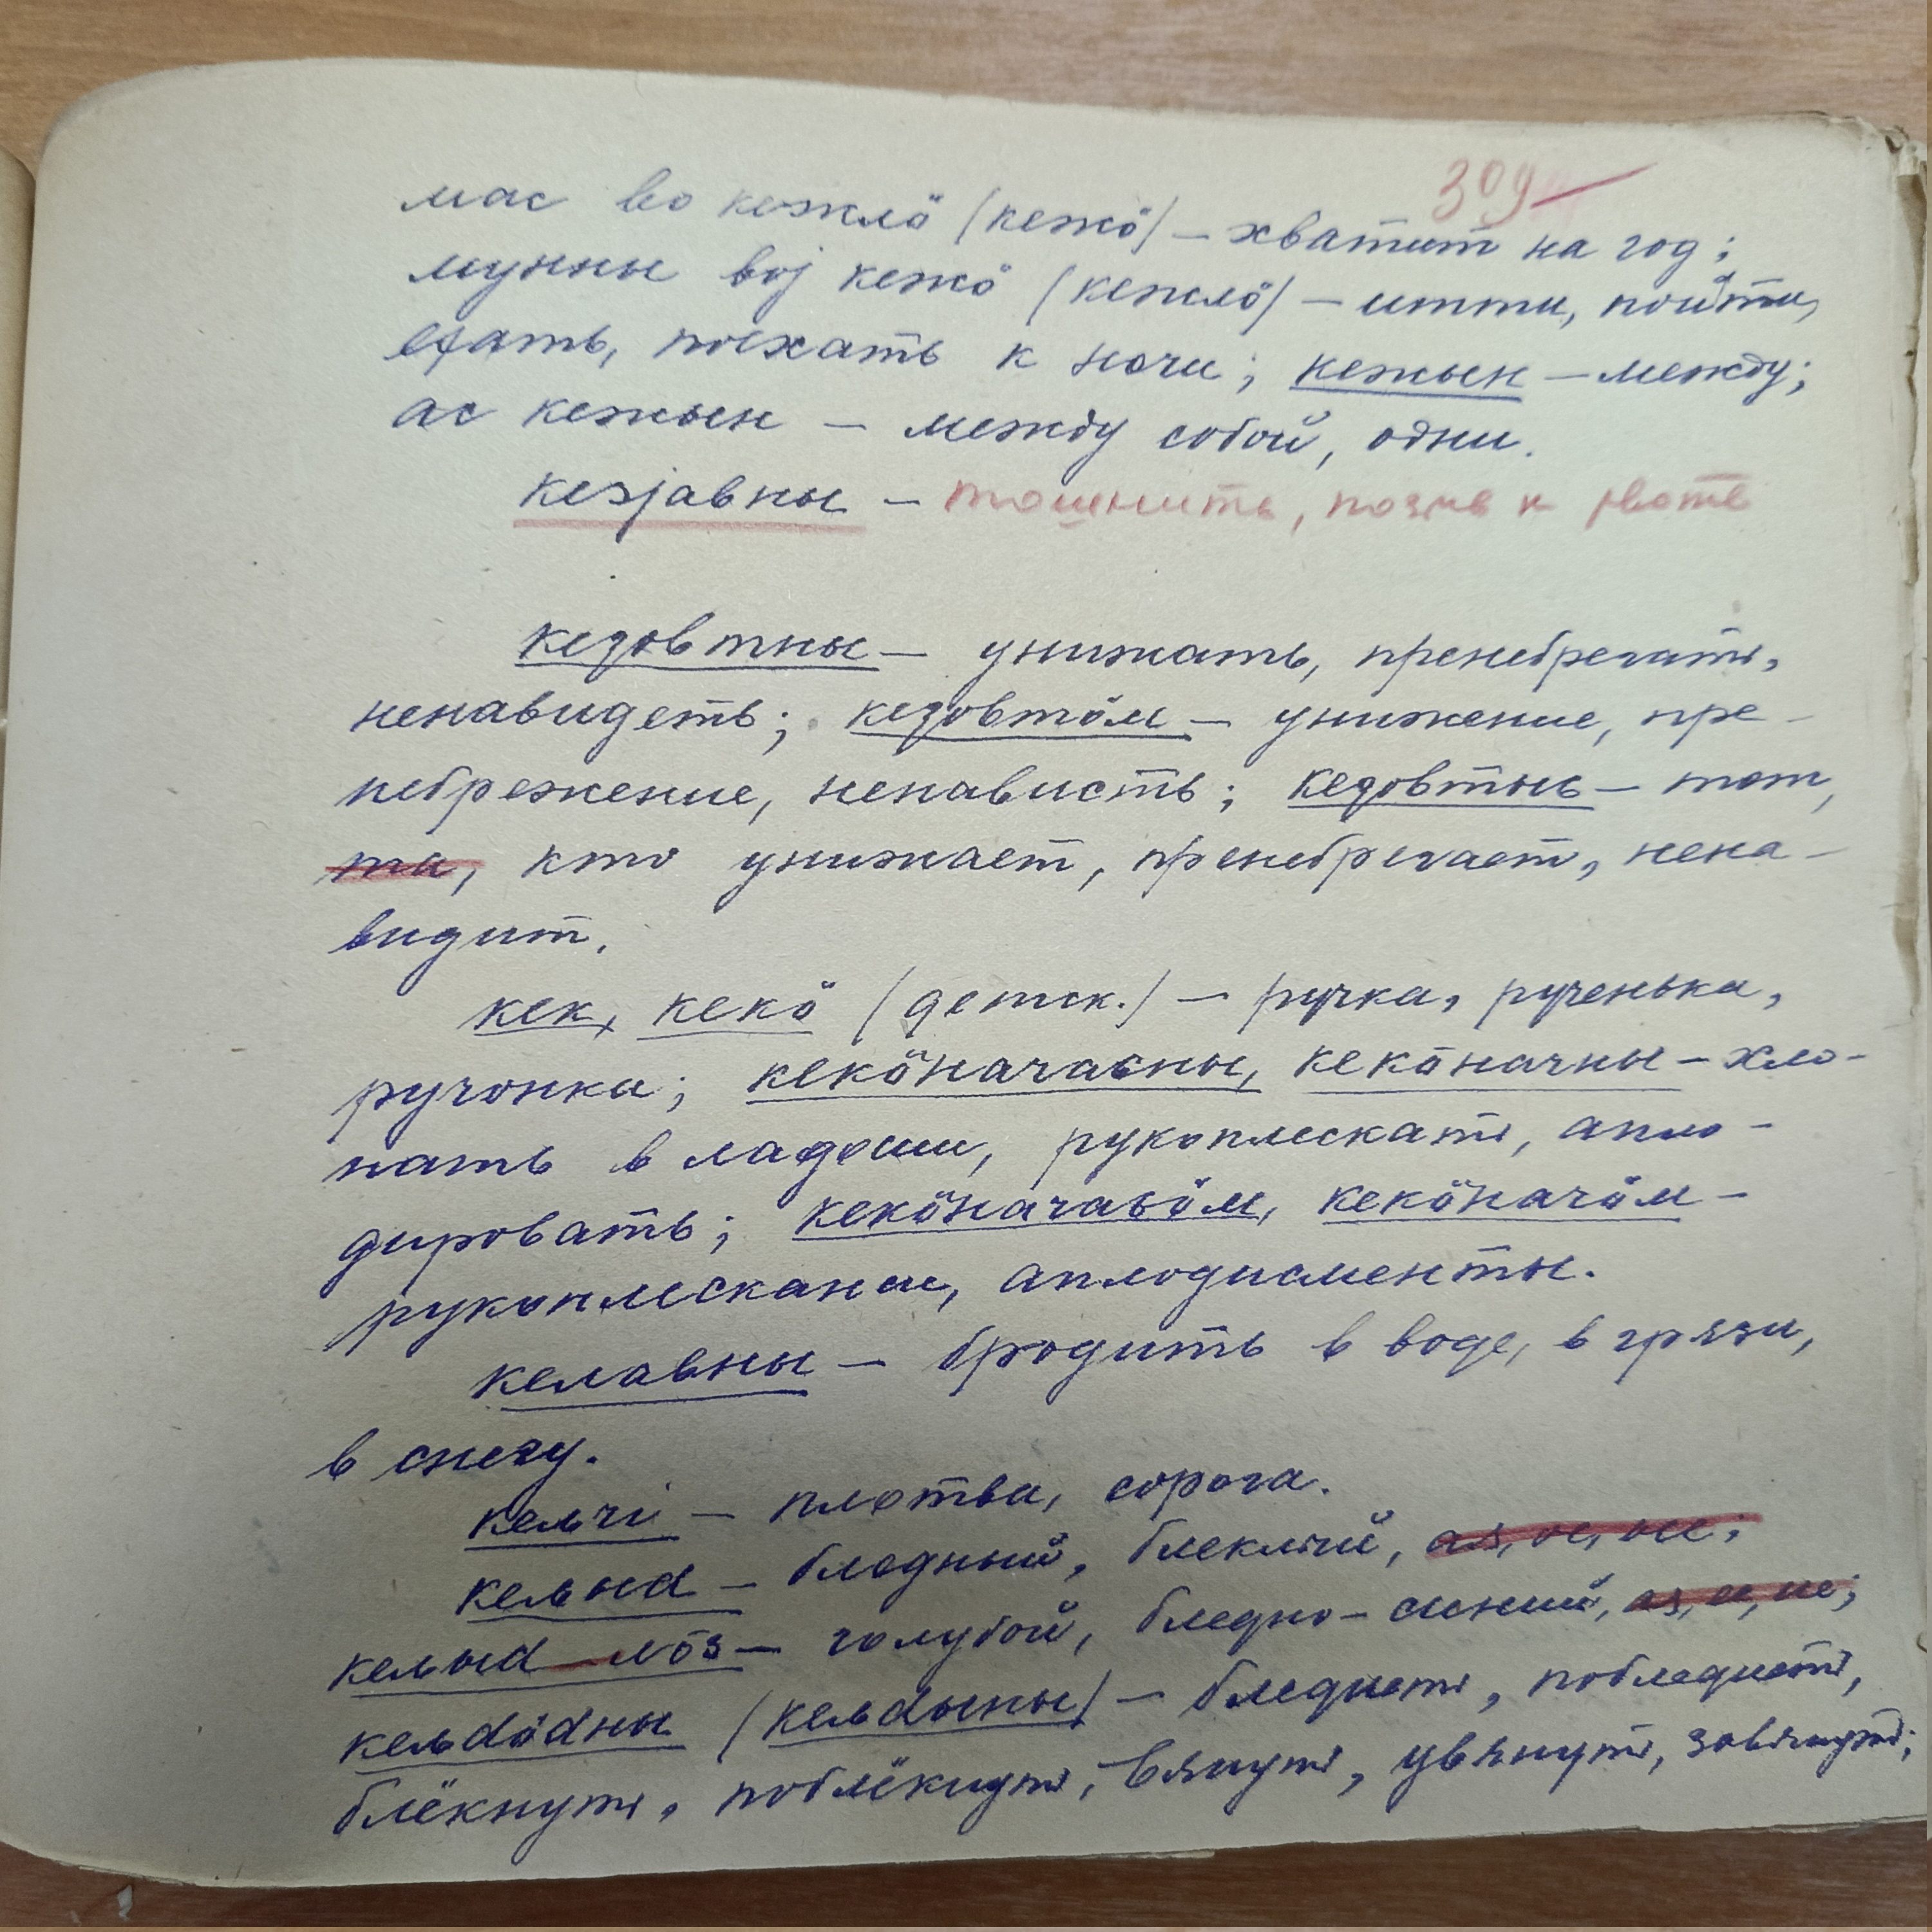 309
мас во кежлӧ (кежӧ) – хватит на год;
мунны воj кежӧ (кежлӧ) – итти, пойти,
ехать, поехать к ночи; кежын – между;
ас кежын – между собой, одни.
кезjавны – тошнить, позыв к рвоте
кедовтны – унижать, пренебрегать,
ненавидеть; кедовтӧм – унижение, пре-
небрежение, ненависть; кедовтыь – тот,
та, кто унижает, пренебрегает, нена-
видит.
кек, кекӧ (детск.) – ручка, рученька,
ручонка; кекӧначасны, кекӧначны – хло-
пать в ладоши, рукоплескать, апло-
дировать; кекӧначасӧм, кекӧначӧм –
рукоплескание, аплодисменты.
келавны – бродить в воде, в грязи,
в снегу.
кельчi – плотва, сорога.
кельыd – бледный, блеклый, ая, ое, ые;
кельыd-лӧз – голубой, бледно-синий, ая, ее, ие;
кельdӧdны (кельdыны) – бледнеть, побледнеть,
блёкнуть, поблёкнуть, вянуть, увянуть, завянуть;